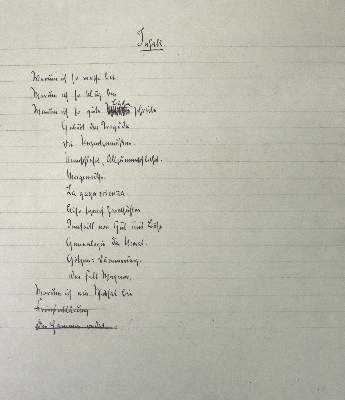 Inhalt.
Warum ich so weise bin
Warum ich so klug bin
Warum ich so gute Bücher schreibe
Geburt der Tragödie
Die Unzeitgemässen.
Menschliches, Allzumenschliches.
Morgenröthe.
La gaya scienza.
Also sprach Zarathustra
Jenseits von Gut und Böse
Genealogie der Moral.
Götzen-Dämmerung.
Der Fall Wagner.
Warum ich ein Schicksal bin
Kriegserklärung
Der Hammer redet.